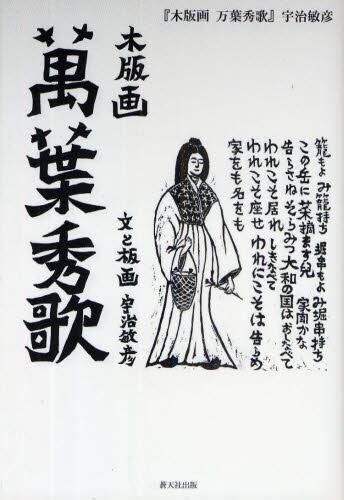 『木版画 万葉秀歌』 宇治敏彦
木版画
萬葉秀歌
文と板画 宇治敏彦
籠もよ み籠持ち 堀串もよ み堀串持ち
この岳に 菜摘ます兒 家聞かな
告らさね そらみつ 大和の国は おしなべて
われこそ居れ しきなべて
われこそ座せ われにこそは 告らめ
家をも名をも
蒼天社出版